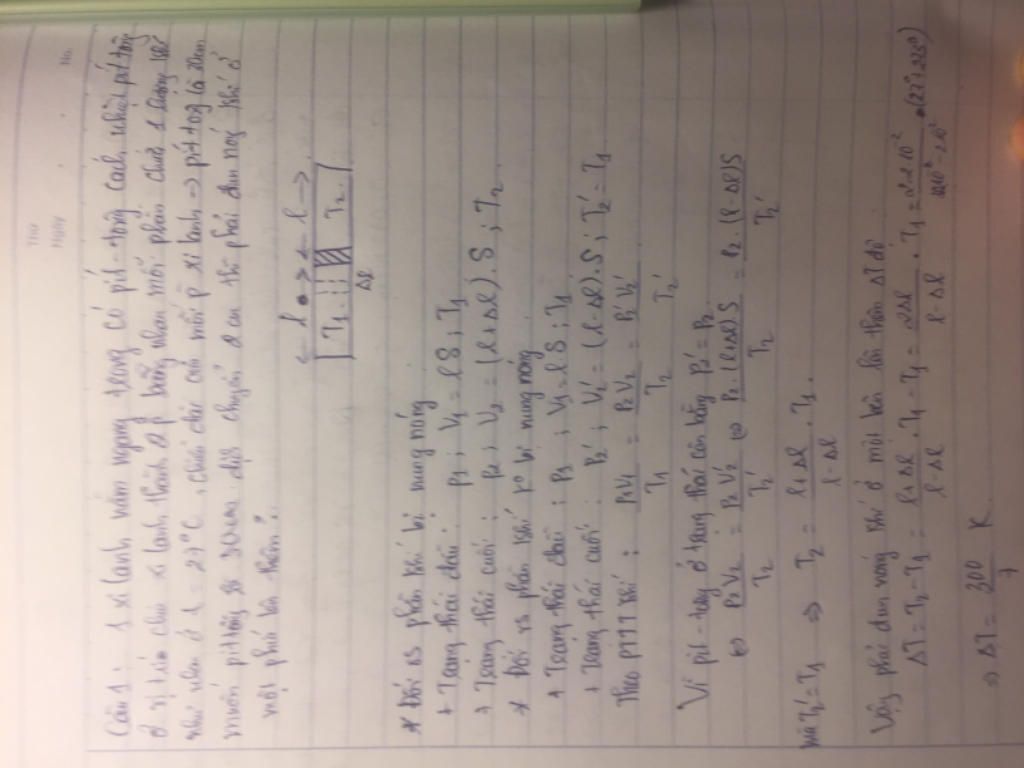 Thứ
Ngày
No.
Câu 1 : 1 xi lanh nằm ngang trong có pít-tông cách nhiệt pít tông
ở vị trí chia xi lanh thành 2 p bằng nhau mỗi phần chứa 1 lượng khí
như nhau ở t = 27°C, chiều dài của mỗi p xi lanh => pít tông là 30cm
muốn pittông dịch chuyển 2 cm thì phải đun nóng khí ở
một phía lên thêm ?
← l → ← l →
T1 T2
Δl
* Đối vs phần khí bị nung nóng
+ Trạng thái đầu : p1 ; V1 = lS ; T1
+ Trạng thái cuối : p2 ; V2 = (l+Δl).S ; T2
* Đối vs phần khí ko bị nung nóng
+ Trạng thái đầu : p1 ; V1 = lS ; T1
+ Trạng thái cuối : p2' ; V2' = (l-Δl).S ; T2' = T1
Theo PTTT khí : p1V1/T1 = p2V2/T2 = p2'V2'/T2'
Vì pít-tông ở trạng thái cân bằng p2' = p2
⇔ p2V2/T2 = p2V2'/T2' ⇔ p2.(l+Δl)S/T2 = p2.(l-Δl)S/T2'
mà T2' = T1 ⇒ T2 = l+Δl/l-Δl . T1
Vậy phải đun nóng khí ở một bên lên thêm ΔT độ
ΔT = T2 - T1 = l+Δl/l-Δl . T1 - T1 = 2Δl/l-Δl . T1 = (27+273)
⇒ ΔT = 300/7 K